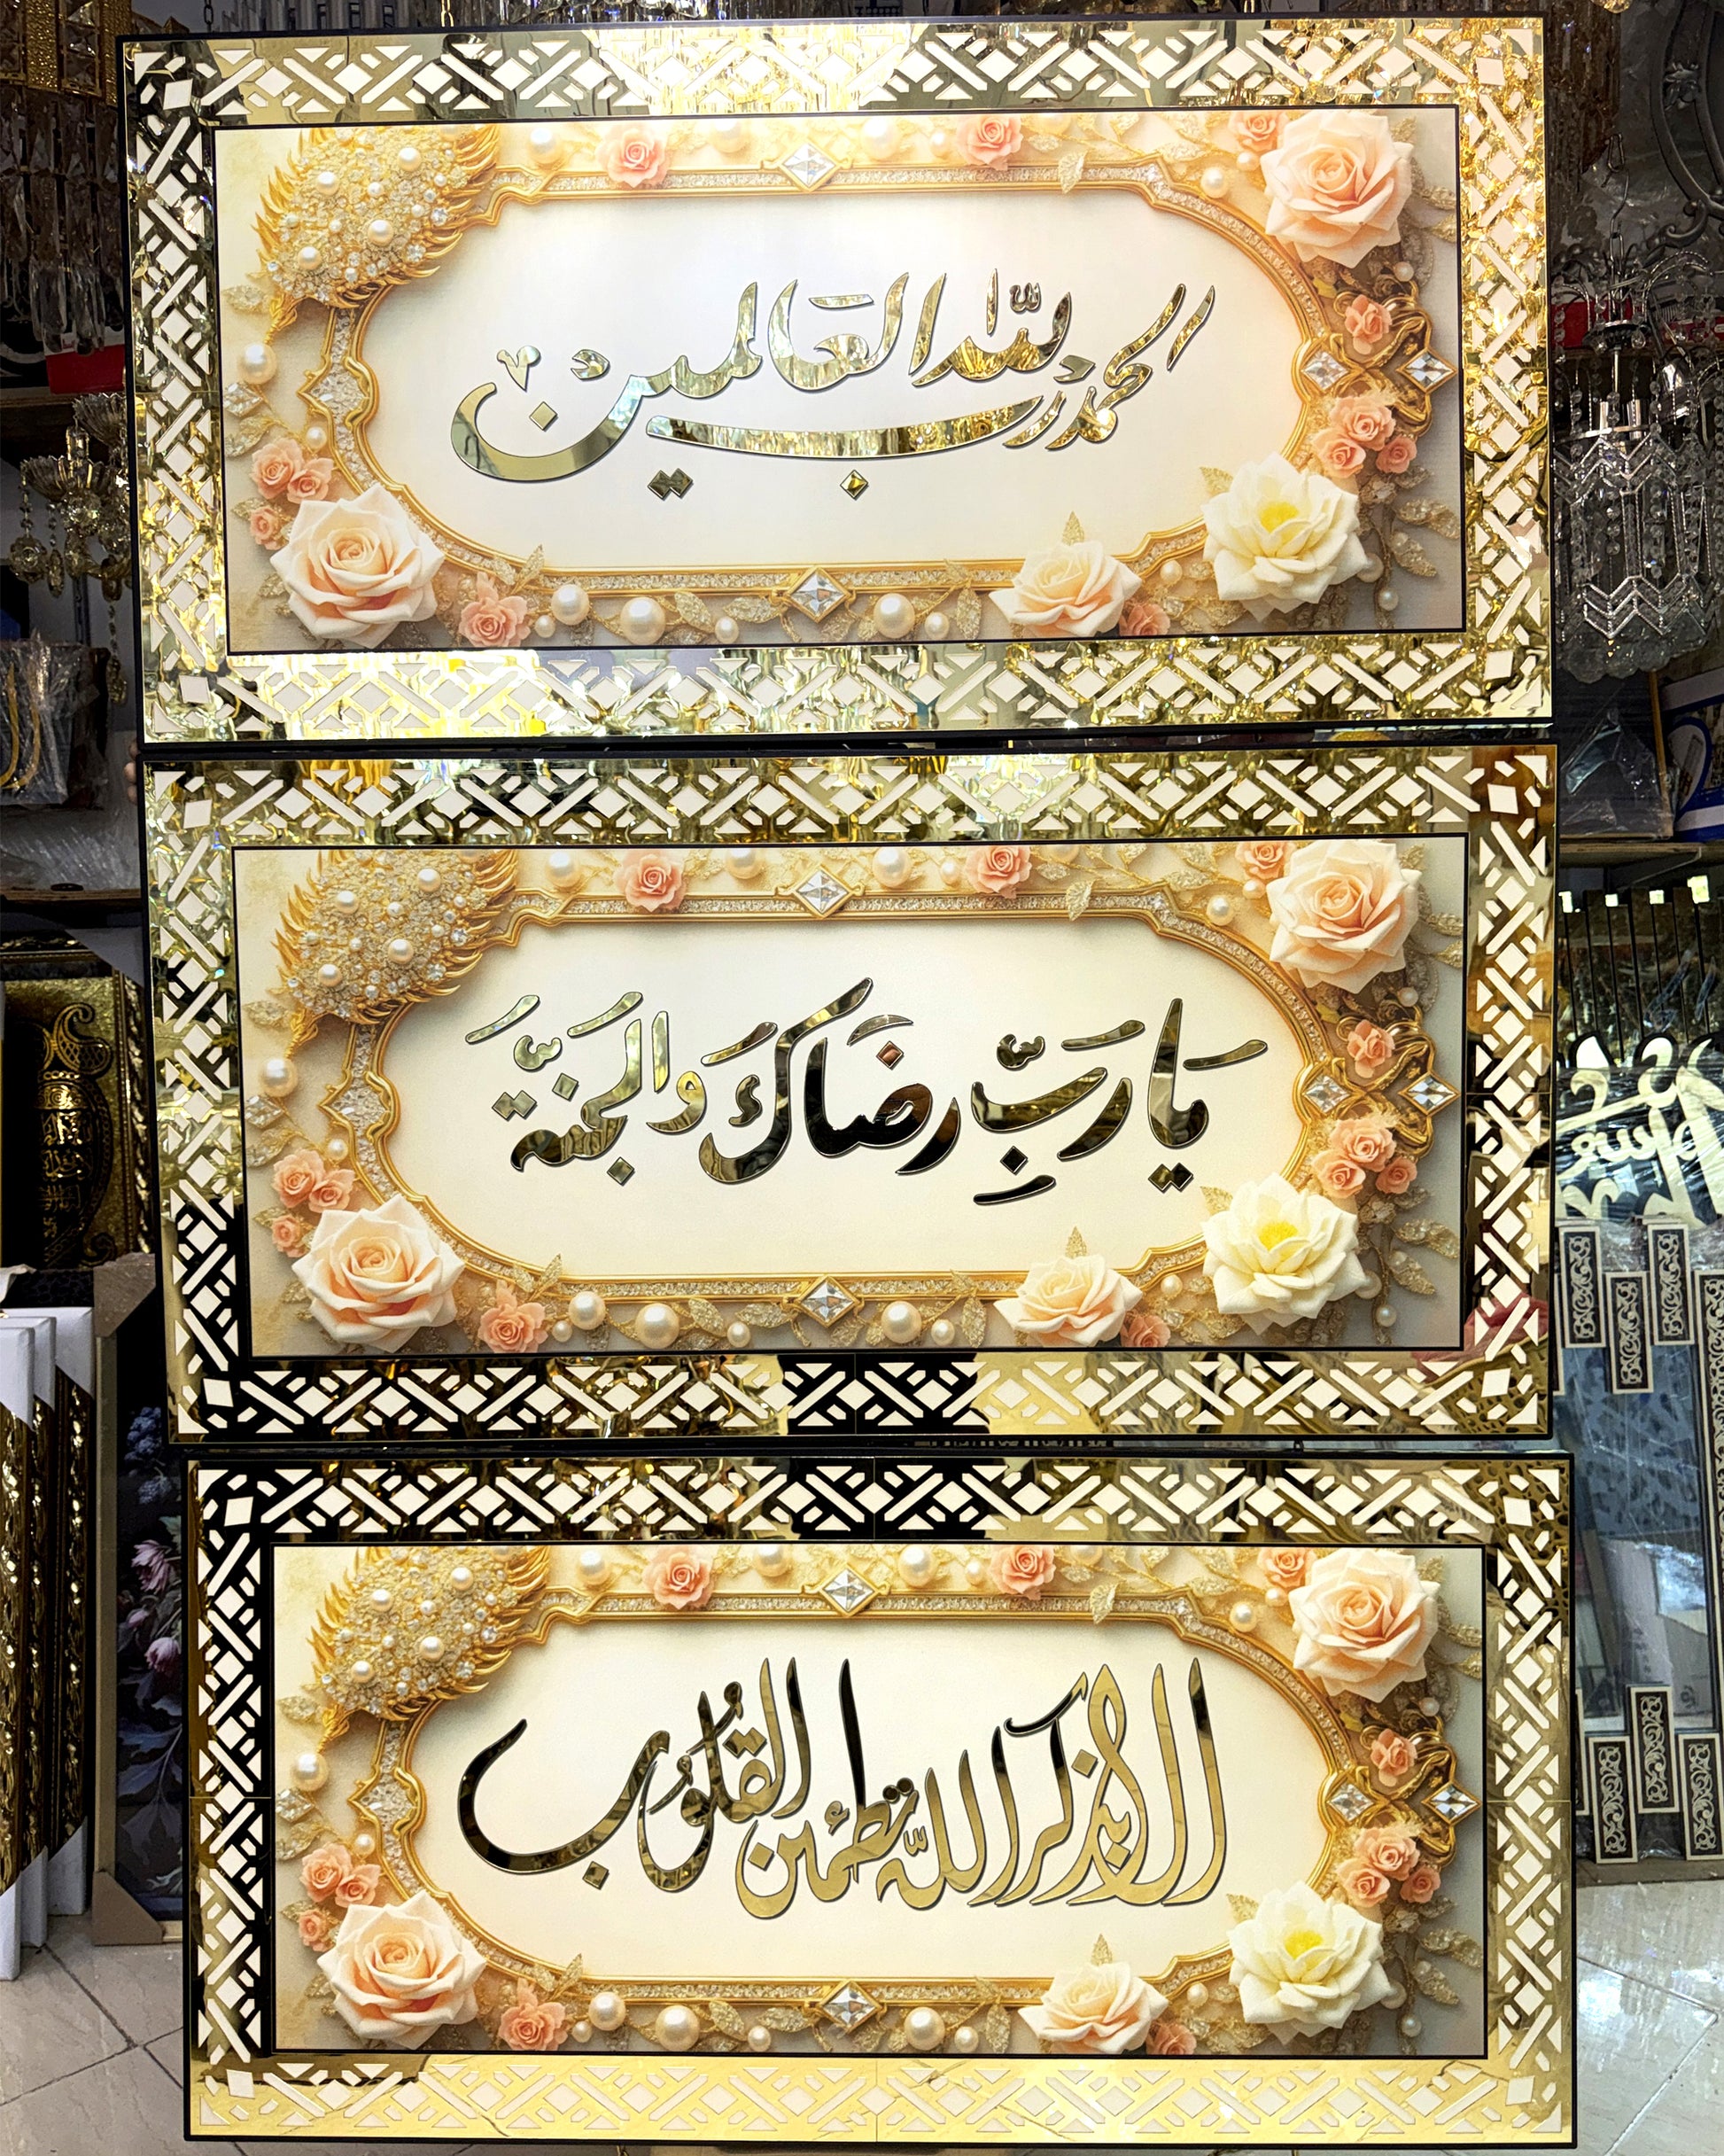 الحمد لله رب العالمين
يَا رَبِّ رِضَاكَ وَالجَنَّةَ
الا بذكر الله تطمئن القُلُوب